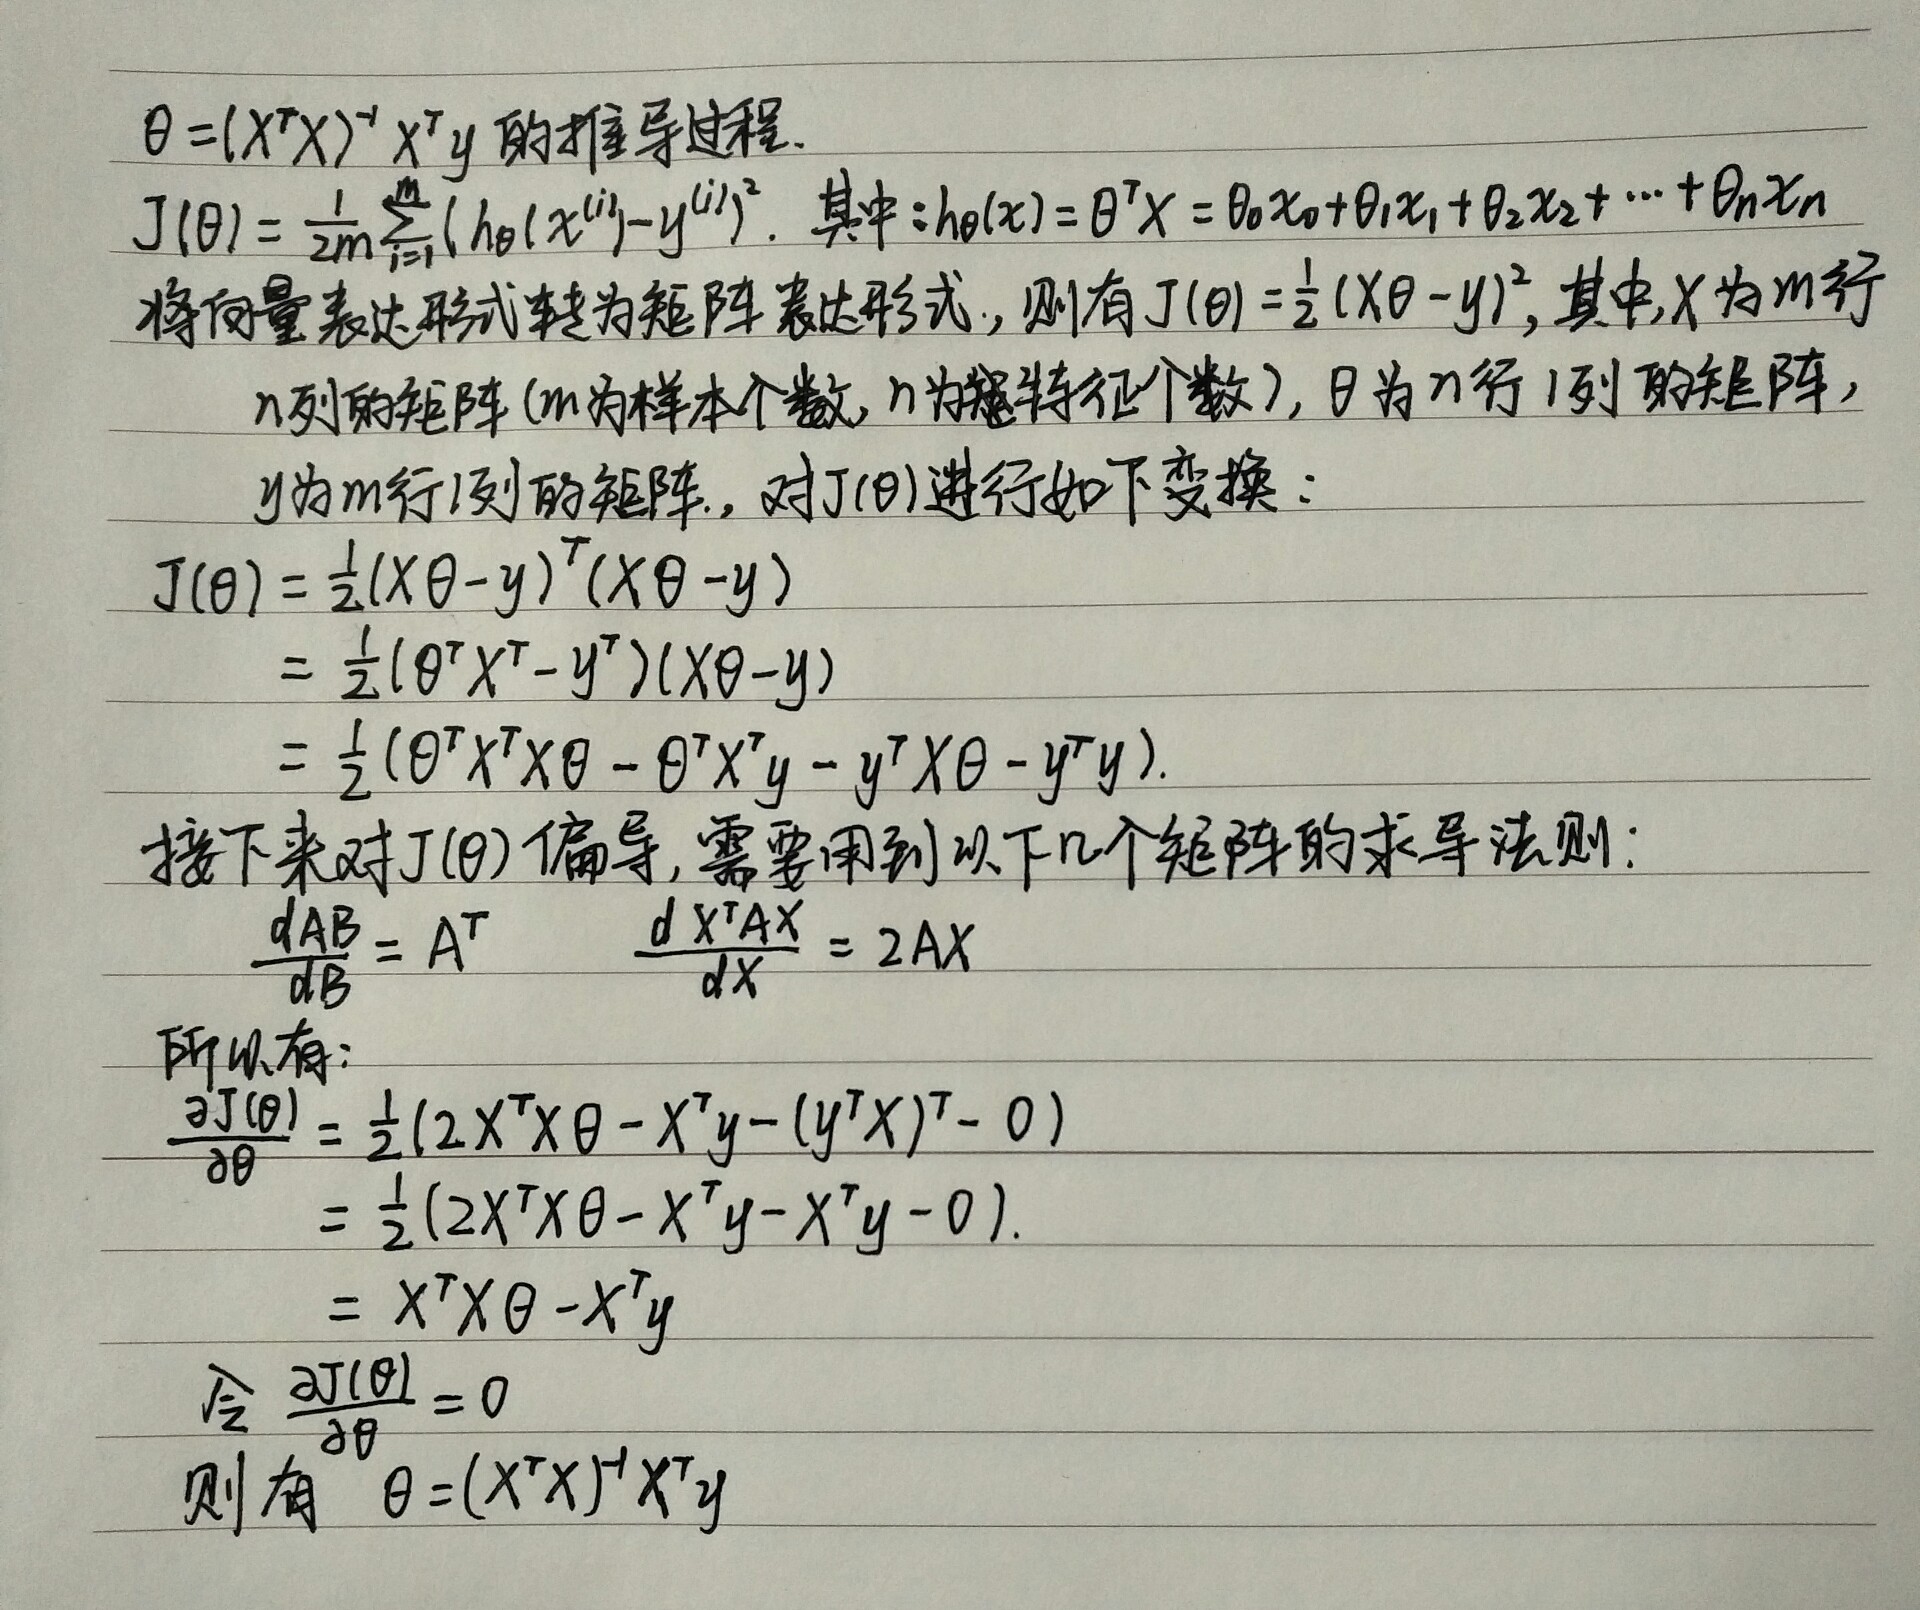 θ=(XᵀX)⁻¹Xᵀy 的推导过程.
J(θ) = 1/2m ∑ᵢ₌₁ᵐ (hθ(x⁽ⁱ⁾)-y⁽ⁱ⁾)². 其中:hθ(x)=θᵀX=θ₀x₀+θ₁x₁+θ₂x₂+…+θₙxₙ
将向量表达形式转为矩阵表达形式., 则有J(θ)=1/2(Xθ-y)²,其中,X为m行
n列的矩阵(m为样本个数,n为特征个数),θ为n行1列的矩阵,
y为m行1列的矩阵., 对J(θ)进行如下变换:
J(θ) = 1/2(Xθ-y)ᵀ(Xθ-y)
= 1/2(θᵀXᵀ-yᵀ)(Xθ-y)
= 1/2(θᵀXᵀXθ-θᵀXᵀy-yᵀXθ-yᵀy).
接下来对J(θ)偏导,需要用到以下几个矩阵的求导法则:
dAB/dB = Aᵀ dXᵀAX/dX = 2AX
所以有:
∂J(θ)/∂θ = 1/2(2XᵀXθ-Xᵀy-(yᵀX)ᵀ-0)
= 1/2(2XᵀXθ-Xᵀy-Xᵀy-0).
= XᵀXθ-Xᵀy
令 ∂J(θ)/∂θ = 0
则有 θ=(XᵀX)⁻¹Xᵀy